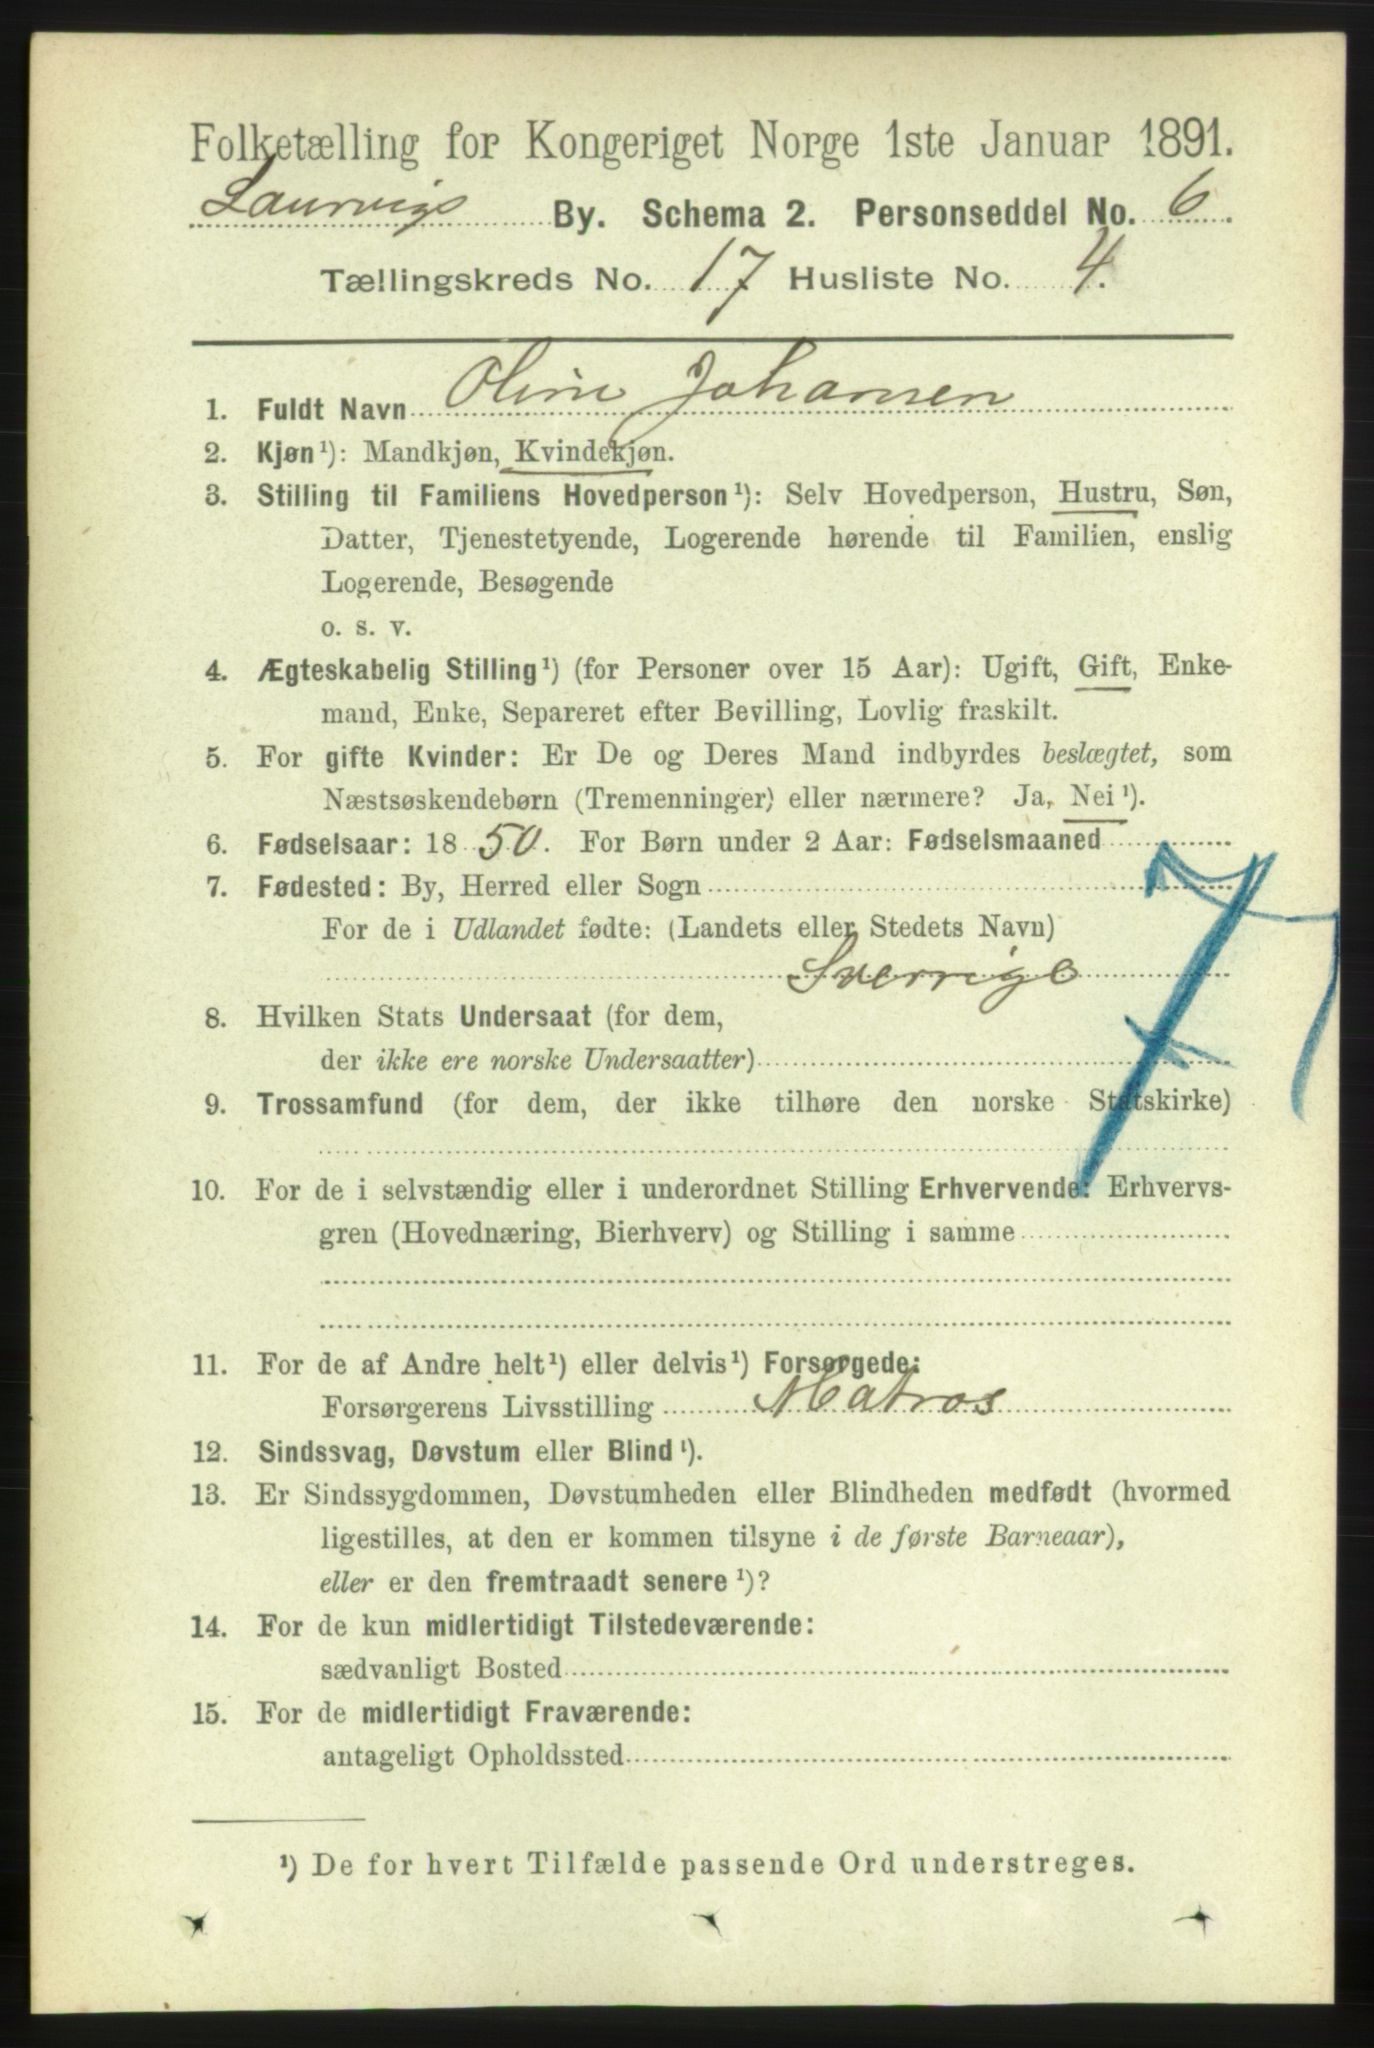 Folketælling for Kongeriget Norge 1ste Januar 1891.
Laurvigs By. Schema 2. Personseddel No. 6.
Tællingskreds No. 17 Husliste No. 4.
1. Fuldt Navn Oline Johansen
2. Kjøn¹): Mandkjøn, Kvindekjøn.
3. Stilling til Familiens Hovedperson¹): Selv Hovedperson, Hustru, Søn,
Datter, Tjenestetyende, Logerende hørende til Familien, enslig
Logerende, Besøgende
o. s. v.
4. Ægteskabelig Stilling¹) (for Personer over 15 Aar): Ugift, Gift, Enke-
mand, Enke, Separeret efter Bevilling, Lovlig fraskilt.
5. For gifte Kvinder: Er De og Deres Mand indbyrdes beslægtet, som
Næstsøskendebørn (Tremenninger) eller nærmere? Ja, Nei¹).
6. Fødselsaar: 1850. For Børn under 2 Aar: Fødselsmaaned
7. Fødested: By, Herred eller Sogn
For de i Udlandet fødte: (Landets eller Stedets Navn)
Sverrige
8. Hvilken Stats Undersaat (for dem,
der ikke ere norske Undersaatter)
9. Trossamfund (for dem, der ikke tilhøre den norske Statskirke)
10. For de i selvstændig eller i underordnet Stilling Erhvervende: Erhvervs-
gren (Hovednæring, Bierhverv) og Stilling i samme
11. For de af Andre helt¹) eller delvis¹) Forsørgede:
Forsørgerens Livsstilling Matros
12. Sindssvag, Døvstum eller Blind¹).
13. Er Sindssygdommen, Døvstumheden eller Blindheden medfødt (hvormed
ligestilles, at den er kommen tilsyne i de første Barneaar),
eller er den fremtraadt senere¹)?
14. For de kun midlertidigt Tilstedeværende:
sædvanligt Bosted
15. For de midlertidigt Fraværende:
antageligt Opholdssted
¹) De for hvert Tilfælde passende Ord understreges.